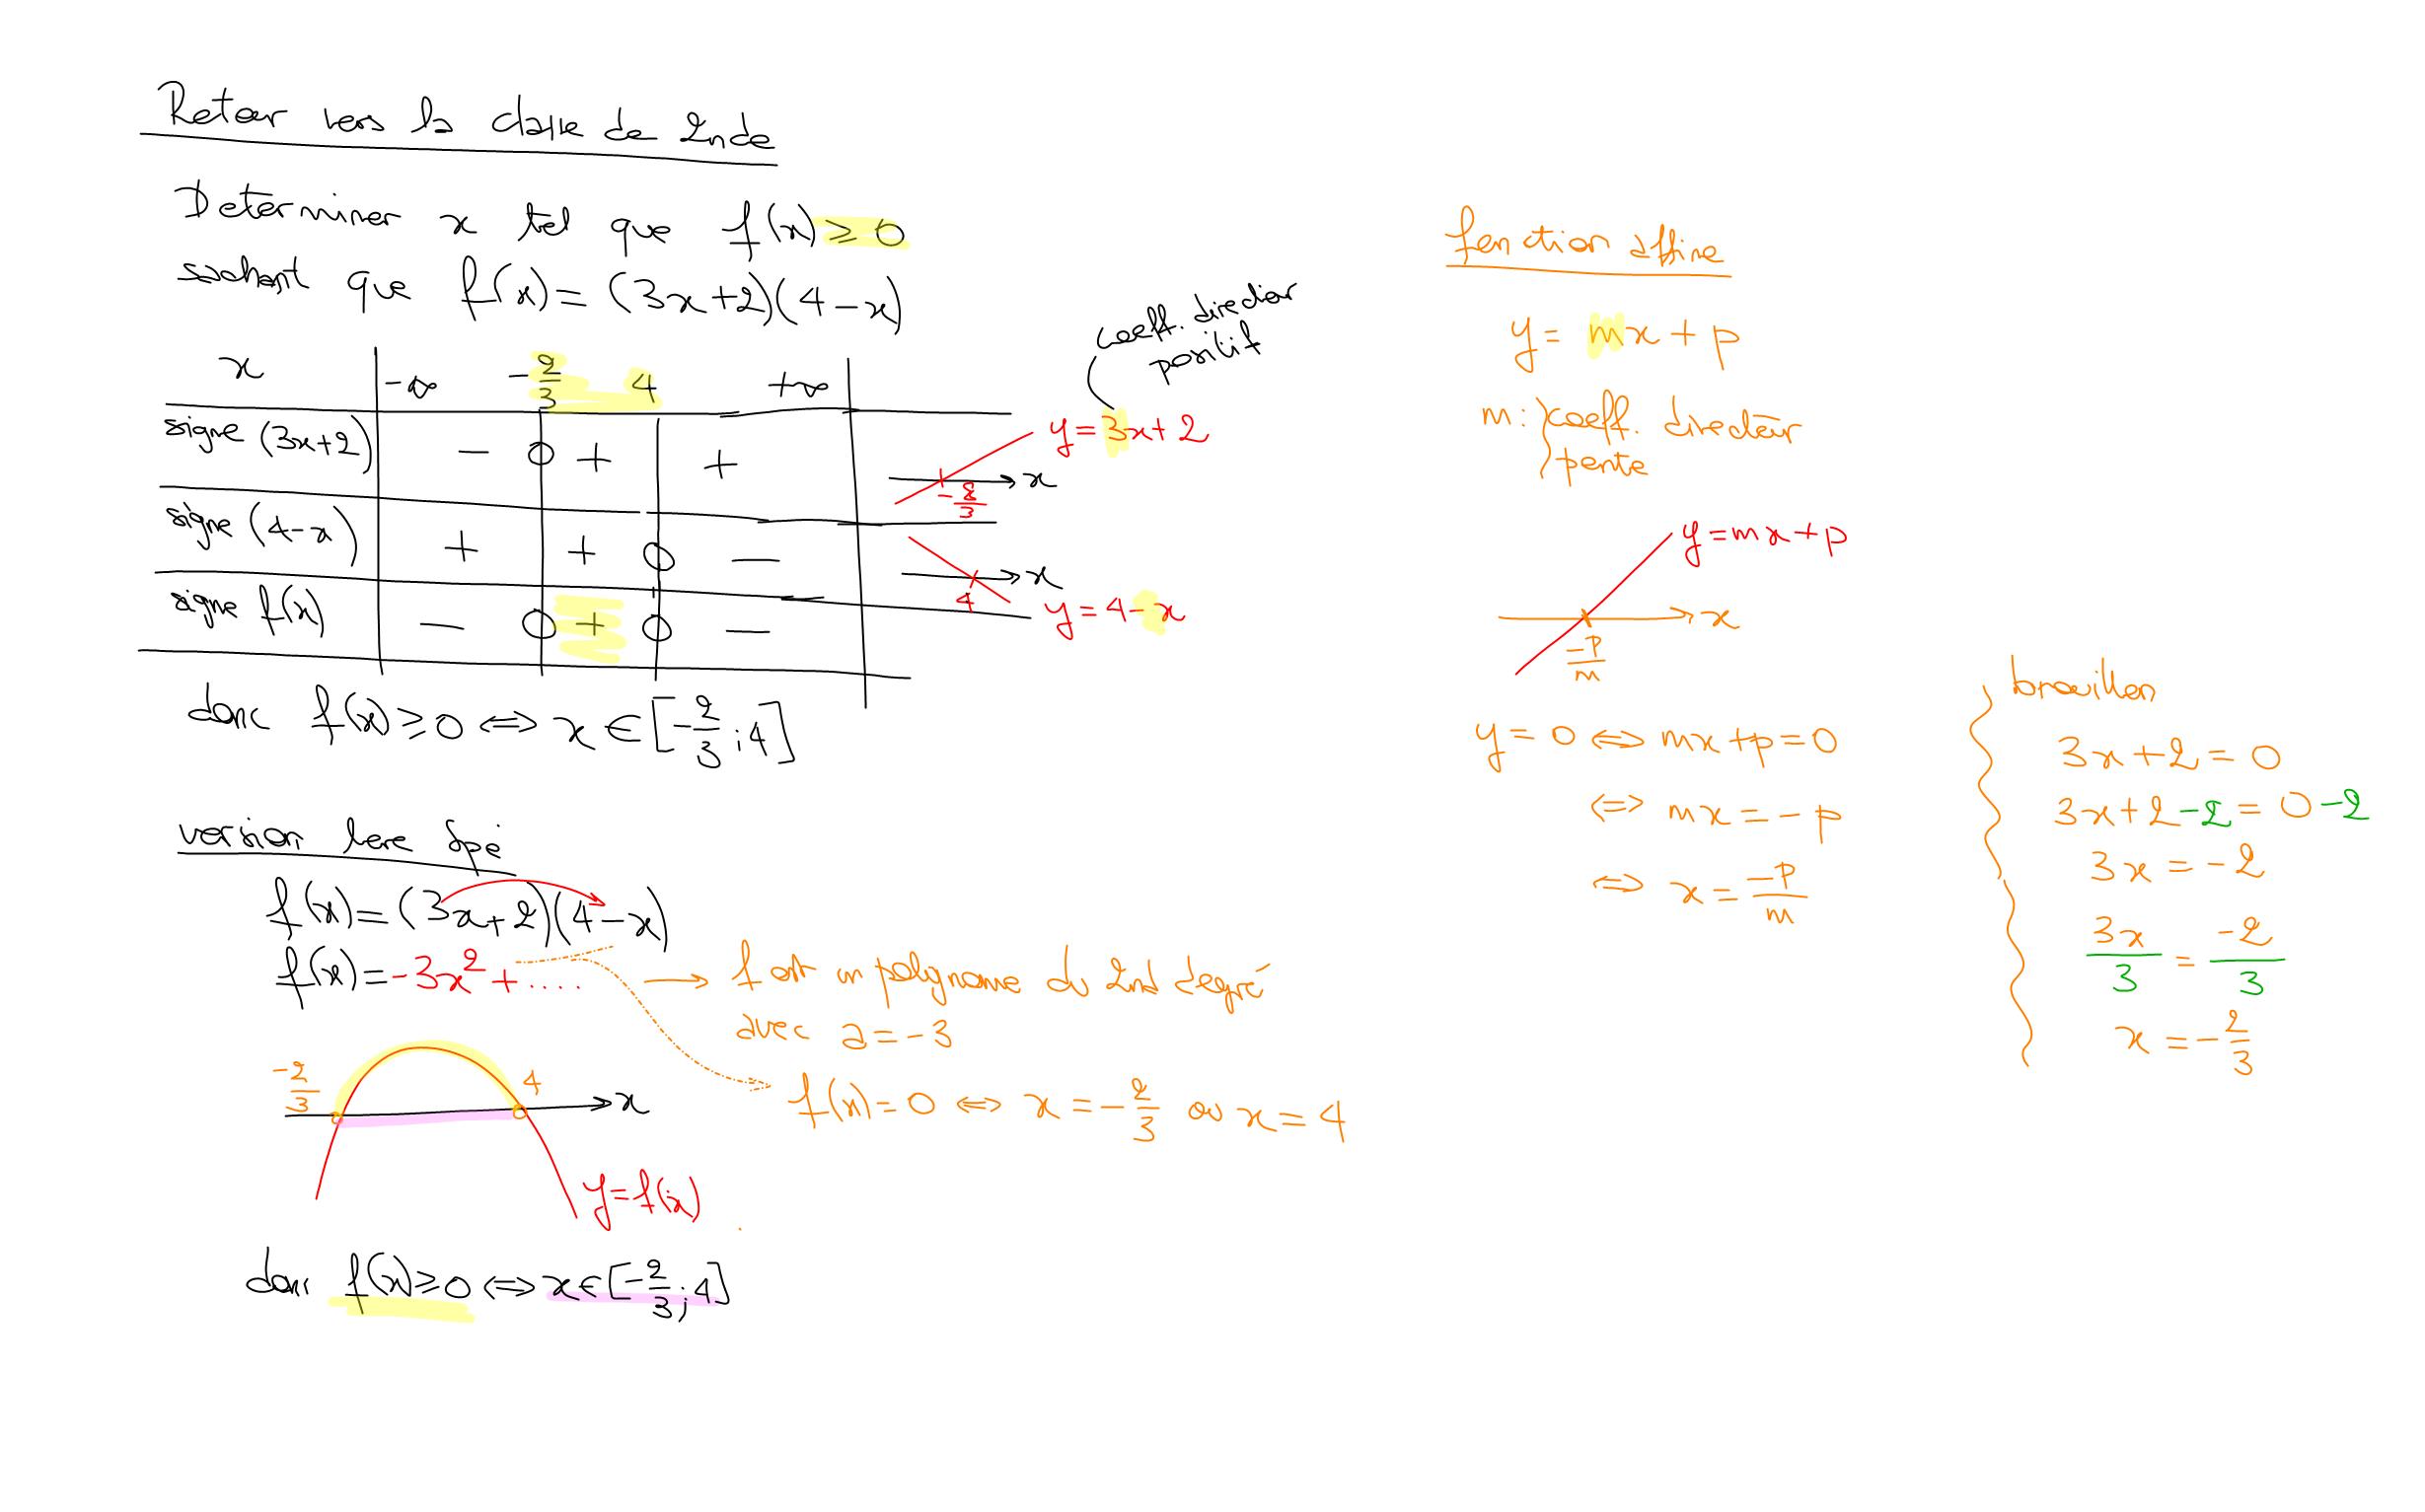 Retour vers la classe de 2nde
Determiner x tel que f(x) ≥ 0
sachant que f(x) = (3x+2)(4-x)
x | -∞ -2/3 4 +∞
signe (3x+2) | - 0 + +
signe (4-x) | + + 0 -
signe f(x) | - 0 + 0 -
coeff. directeur
positif
y = 3x+2
x
-2/3
x
4
y = 4-x
donc f(x) ≥ 0 ⇔ x ∈ [-2/3 ; 4]
version 1ere Spé
f(x) = (3x+2)(4-x)
f(x) = -3x² + ....
→ f est un polynome du 2nd degré
avec a = -3
f(x) = 0 ⇔ x = -2/3 ou x = 4
-2/3
4
x
y = f(x)
donc f(x) ≥ 0 ⇔ x ∈ [-2/3 ; 4]
fonction affine
y = mx + p
m : coeff. directeur
pente
y = mx + p
x
-p/m
y = 0 ⇔ mx + p = 0
⇔ mx = -p
⇔ x = -p/m
brouillon
3x + 2 = 0
3x + 2 - 2 = 0 - 2
3x = -2
3x/3 = -2/3
x = -2/3